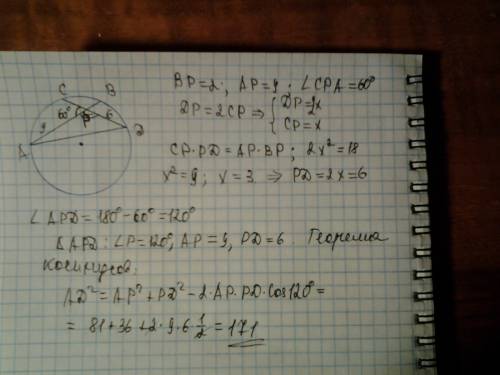 C B
60° 6
P
9 D
A
BP=2; AP=9; ∠CPA=60°
DP=2CP ⇒ { DP=2x
CP=x
CP·PD=AP·BP; 2x²=18
x²=9; x=3 ⇒ PD=2x=6
∠APD=180°-60°=120°
ΔAPD: ∠P=120°, AP=9, PD=6. Теорема
косинусов:
AD²=AP²+PD²-2·AP·PD·cos120°=
= 81+36+2·9·6·1/2=171